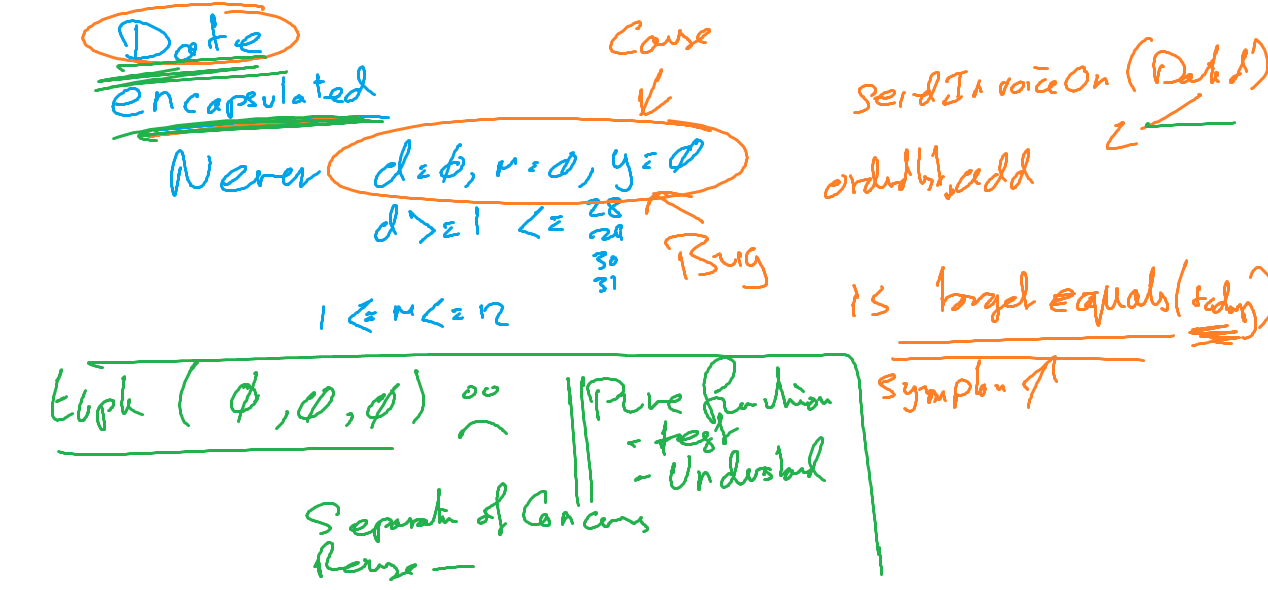 Date
encapsulated
Never d=0, m=0, y=0
Cause
d>=1 <= 28
29
30
31
Bug
1 <= m <= 12
sendInvoiceOn (Date d)
orderlist.add
is target equals (today)
Symptom
tuple (0,0,0)
Pure function
- test
- Understand
Separation of Concerns
Reuse —